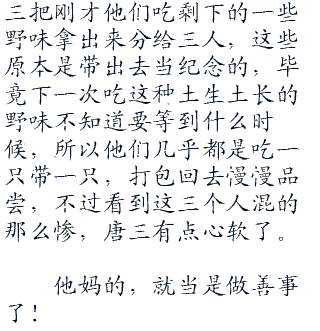 三把刚才他们吃剩下的一些
野味拿出来分给三人，这些
原本是带出去当纪念的，毕
竟下一次吃这种土生土长的
野味不知道要等到什么时
候，所以他们几乎都是吃一
只带一只，打包回去慢慢品
尝，不过看到这三个人混的
那么惨，唐三有点心软了。
他妈的，就当是做善事
了！